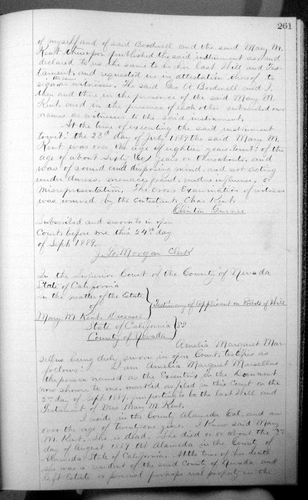 261
of myself and of said Bordwell and the said Mary M.
Kent thereupon published the said instrument as and
declared to us the same to be her Last Will and Tes-
tament and requested us in attestation thereof to
sign as witnesses. The said Geo. A. Bordwell and I,
then and there in the presence of the said Mary M.
Kent and in the presence of each other subscribed our
names as witnesses to the said instrument.
At the time of executing the said instrument
towit: the 23d day of July 1889 the said Mary M.
Kent was over the age of eighteen years towit: of the
age of about Sixty years or thereabouts, and
was of sound and disposing mind and not acting
under duress, menace, fraud, undue influence, or
misrepresentation. The cross Examination of witness
was waived by the Contestant, Chas. Kent.
Subscribed and sworn to in open
Court before me this 24th day
of Sept. 1889.
J. L. Morgan Clerk
In the Superior Court of the County of Nevada
State of California
In the matter of the Estate
of
Mary M. Kent, Deceased
Testimony of Applicant on Probate of Will
State of California
County of Nevada
SS
Amelia Margaret Mar-
sellus being duly sworn in open Court, testifies as
follows: I am Amelia Margaret Marsellus
the person named as the Executrix in the document
now shown to me marked as filed in this Court on the
2nd day of Sept. 1889, purporting to be the last Will and
Testament of Mary M. Kent.
I reside in the County Alameda Cal. and am
over the age of twenty one years. I knew said Mary
M. Kent. She is dead. She died on or about the
day of August 1889 at Alameda in the County of
Alameda State of California. At the time of her death
she was a resident of the said County of Nevada and
left Estate or personal property and property in the